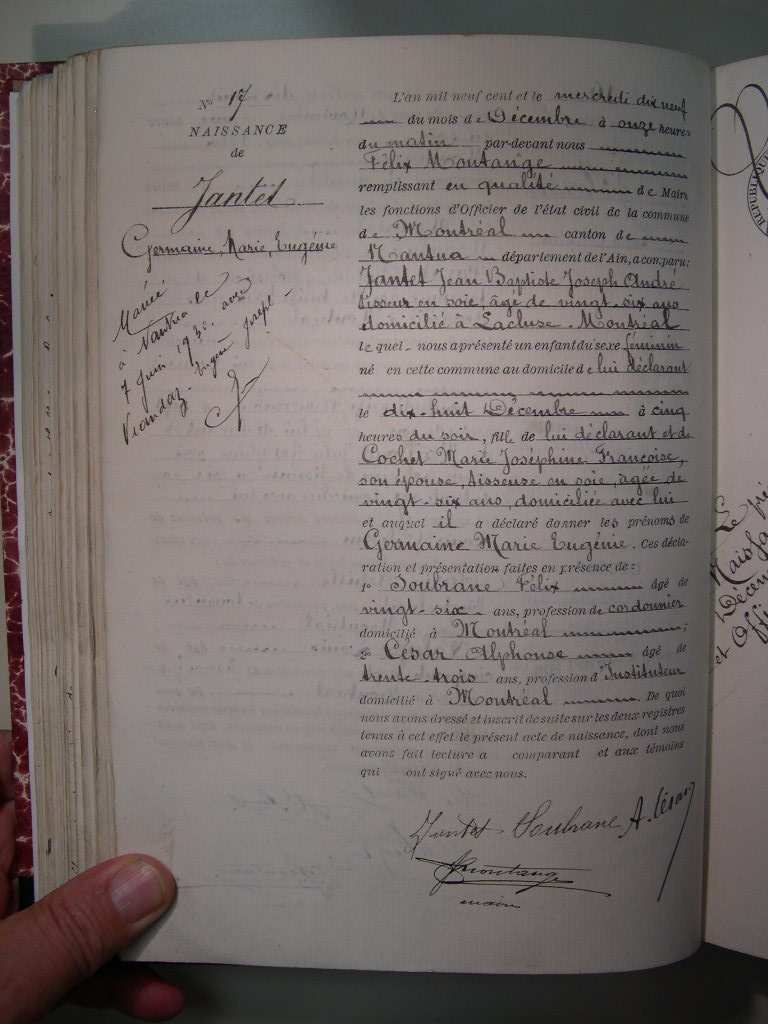 No 17
NAISSANCE
de
Jantet
Germaine, Marie, Eugénie
Mariée
à Nantua le
7 Juin 193 avec
Eugène Joseph
L'an mil neuf cent et le mercredi dix neuf
du mois de Décembre à onze heures
du matin par-devant nous
Félix Moutange
remplissant en qualité de Maire
les fonctions d'Officier de l'état civil de la commune
de Montréal canton de
Nantua département de l'Ain, a comparu:
Jantet Jean Baptiste Joseph André
tisseur en soie, âgé de vingt-six ans
domicilié à Lacluse-Montréal
lequel nous a présenté un enfant du sexe féminin
né en cette commune au domicile de lui déclarant
le dix-huit Décembre à cinq
heures du soir, fille de lui déclarant et de
Cochet Marie Joséphine Françoise,
son épouse, tisseuse en soie, agée de
vingt-six ans, domiciliée avec lui
et auquel il a déclaré donner les prénoms de
Germaine Marie Eugénie. Ces décla-
ration et présentation faites en présence de:
1o Soubrane Félix âgé de
vingt-six ans, profession de cordonnier
domicilié à Montréal ;
2o César Alphonse âgé de
trente-trois ans, profession d'Instituteur
domicilié à Montréal . De quoi
nous avons dressé et inscrit de suite sur les deux registres
tenus à cet effet le présent acte de naissance, dont nous
avons fait lecture a comparant et aux témoins
qui ont signé avec nous.
Jantet Soubrane A. César
Moutange
maire
Le
et Offi